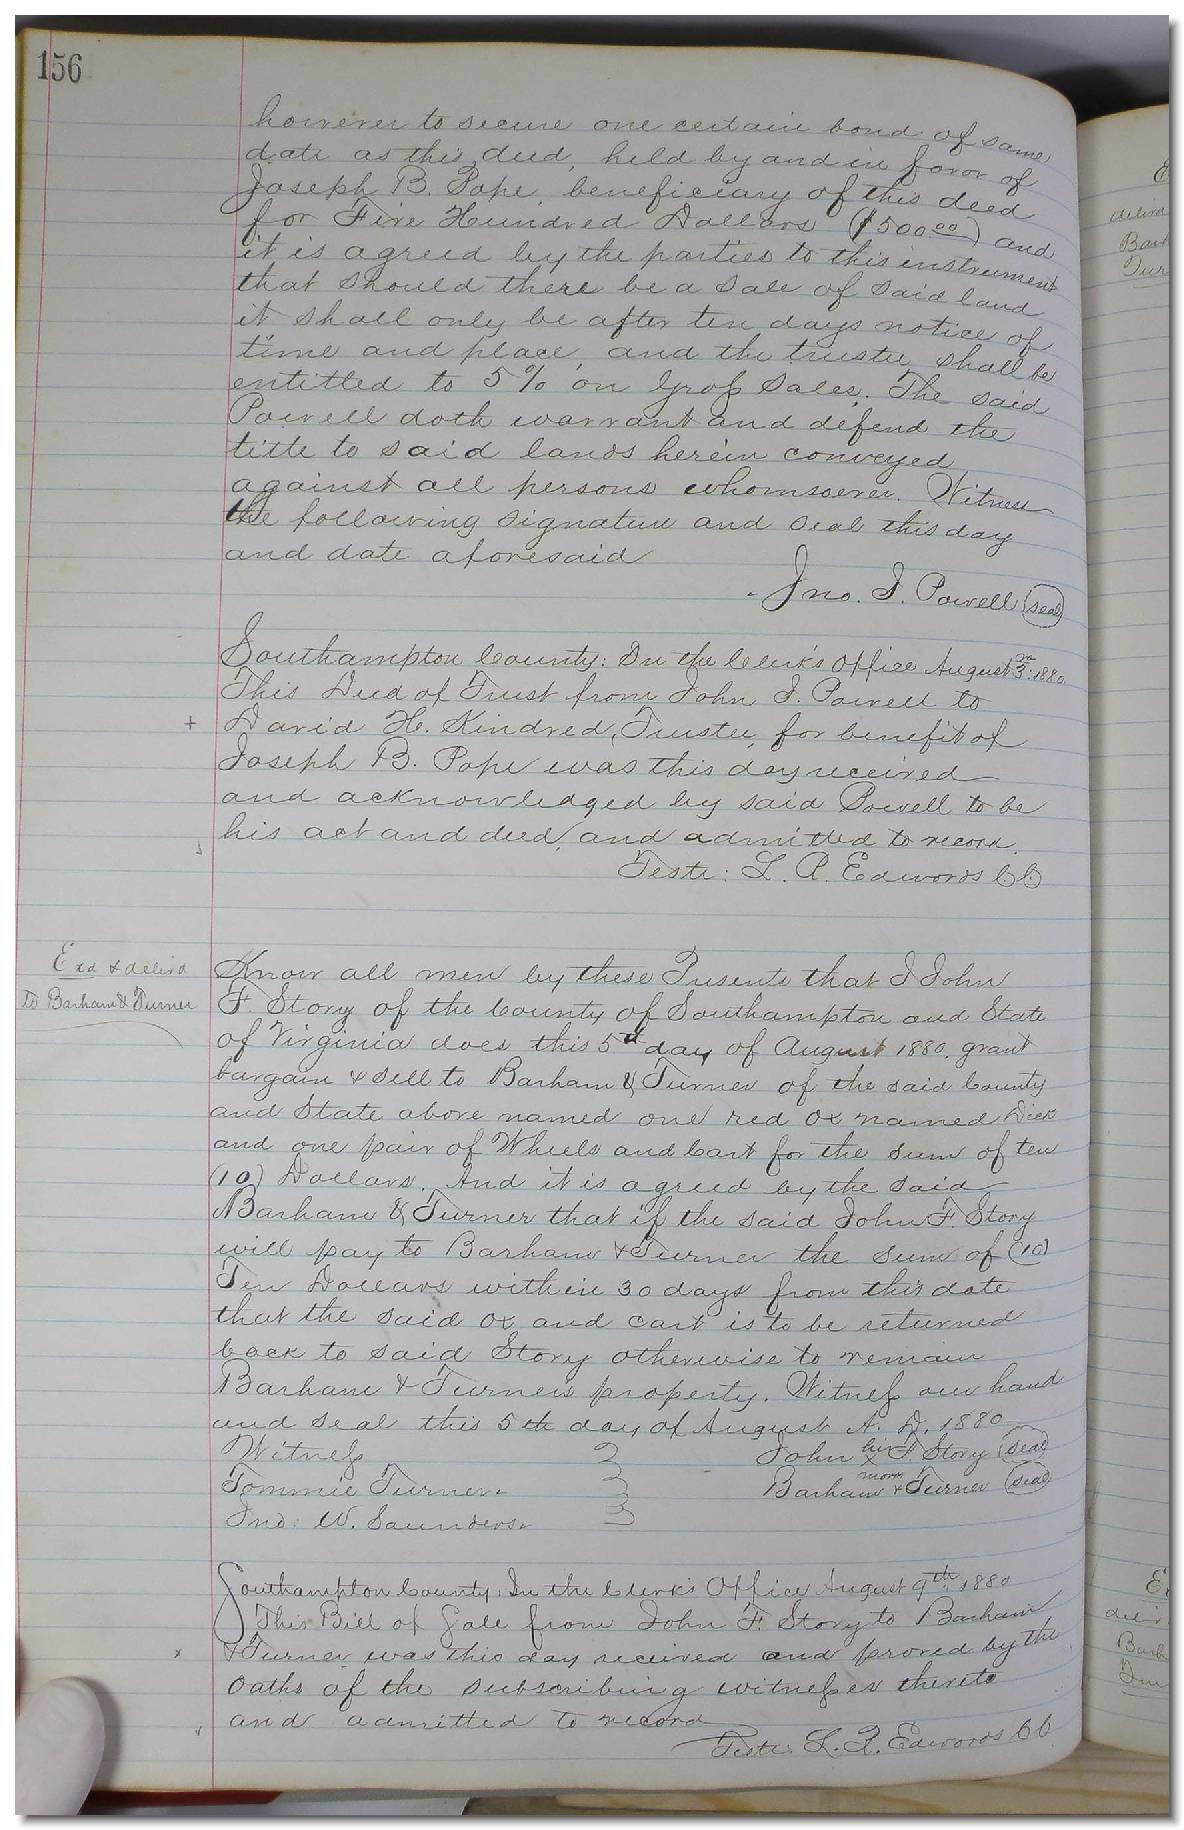 156
however to secure one certain bond of same
date as this deed, held by and in favor of
Joseph B. Pope, beneficiary of this deed
for Five Hundred Dollars ($500.00) and
it is agreed by the parties to this instrument
that should there be a sale of said land
it shall only be after ten days notice of
time and place, and the trustee shall be
entitled to 5% on Gross Sales. The said
Powell doth warrant and defend the
title to said lands herein conveyed
against all persons whomsoever. Witness
the following signature and seal this day
and date aforesaid
Jno. J. Powell (seal)
Southampton County: In the Clerk's Office August 3rd 1880
This Deed of Trust from John J. Powell to
+ David H. Kindred, Trustee, for benefit of
Joseph B. Pope was this day received
and acknowledged by said Powell to be
his act and deed, and admitted to record.
Teste: L. R. Edwards CC
Exd & delivd
to Barham & Turner
Know all men by these Presents that I John
F. Story of the County of Southampton and State
of Virginia does this 5th day of August 1880, grant
bargain & sell to Barham & Turner of the said County
and State above named one red ox named Dick
and one pair of Wheels and Cart for the sum of ten
(10) Dollars. And it is agreed by the said
Barham & Turner that if the said John F. Story
will pay to Barham & Turner the sum of (10)
Ten Dollars within 30 days from this date
that the said ox and cart is to be returned
back to said Story otherwise to remain
Barham & Turners property. Witness our hand
and seal this 5th day of August A. D. 1880
Witness John his x mark F Story (seal)
Tommie Turner Barham & Turner (seal)
Jno. W. Saunders
Southampton County: In the Clerk's Office August 9th 1880
This Bill of Sale from John F. Story to Barham
x & Turner was this day received and proved by the
Oaths of the subscribing witnesses thereto
and admitted to record
Teste: L. R. Edwards CC
delivd
Turn